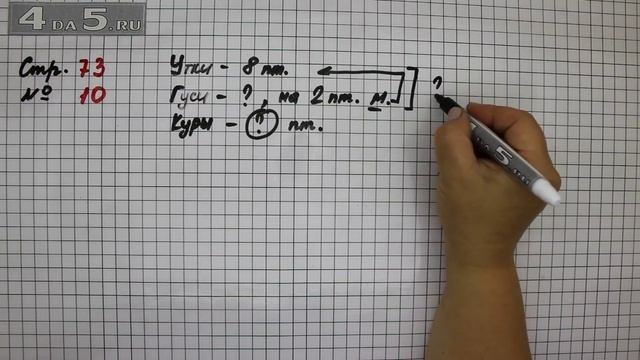 4 DA 5.RU
Стр. 73
№ 10
Утки - 8 пт.
Гуси - ?, на 2 пт. м.
Куры - ? пт.
?
4 DA 5